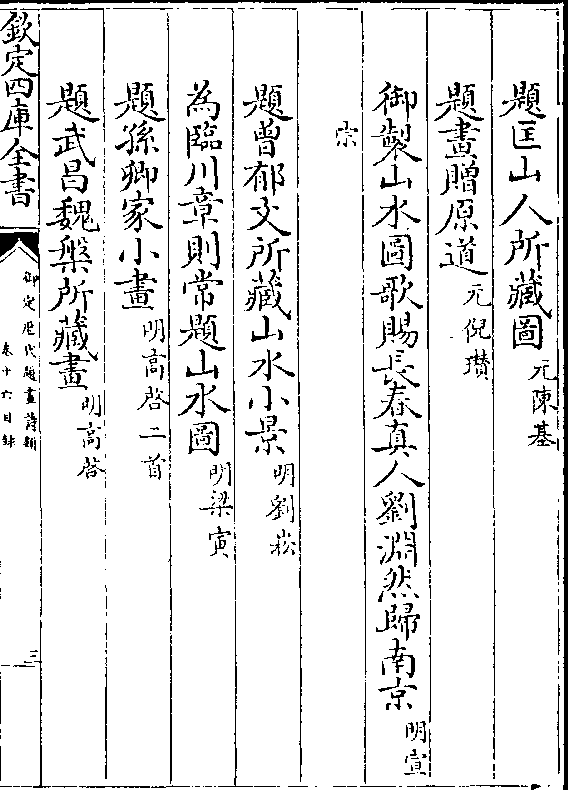 題匡山人所藏圖元陳基
題畫贈原道元倪瓚
御製山水圖歌賜長春真人劉淵然歸南京明宣
宗
題曾郁文所藏山水小景明劉崧
為臨川章則常題山水圖明梁寅
題孫卿家小畫明高啓二首
題武昌魏槃所藏畫明高啓
欽定四庫全書
御定歴代題畫詩類
卷十六目録
三